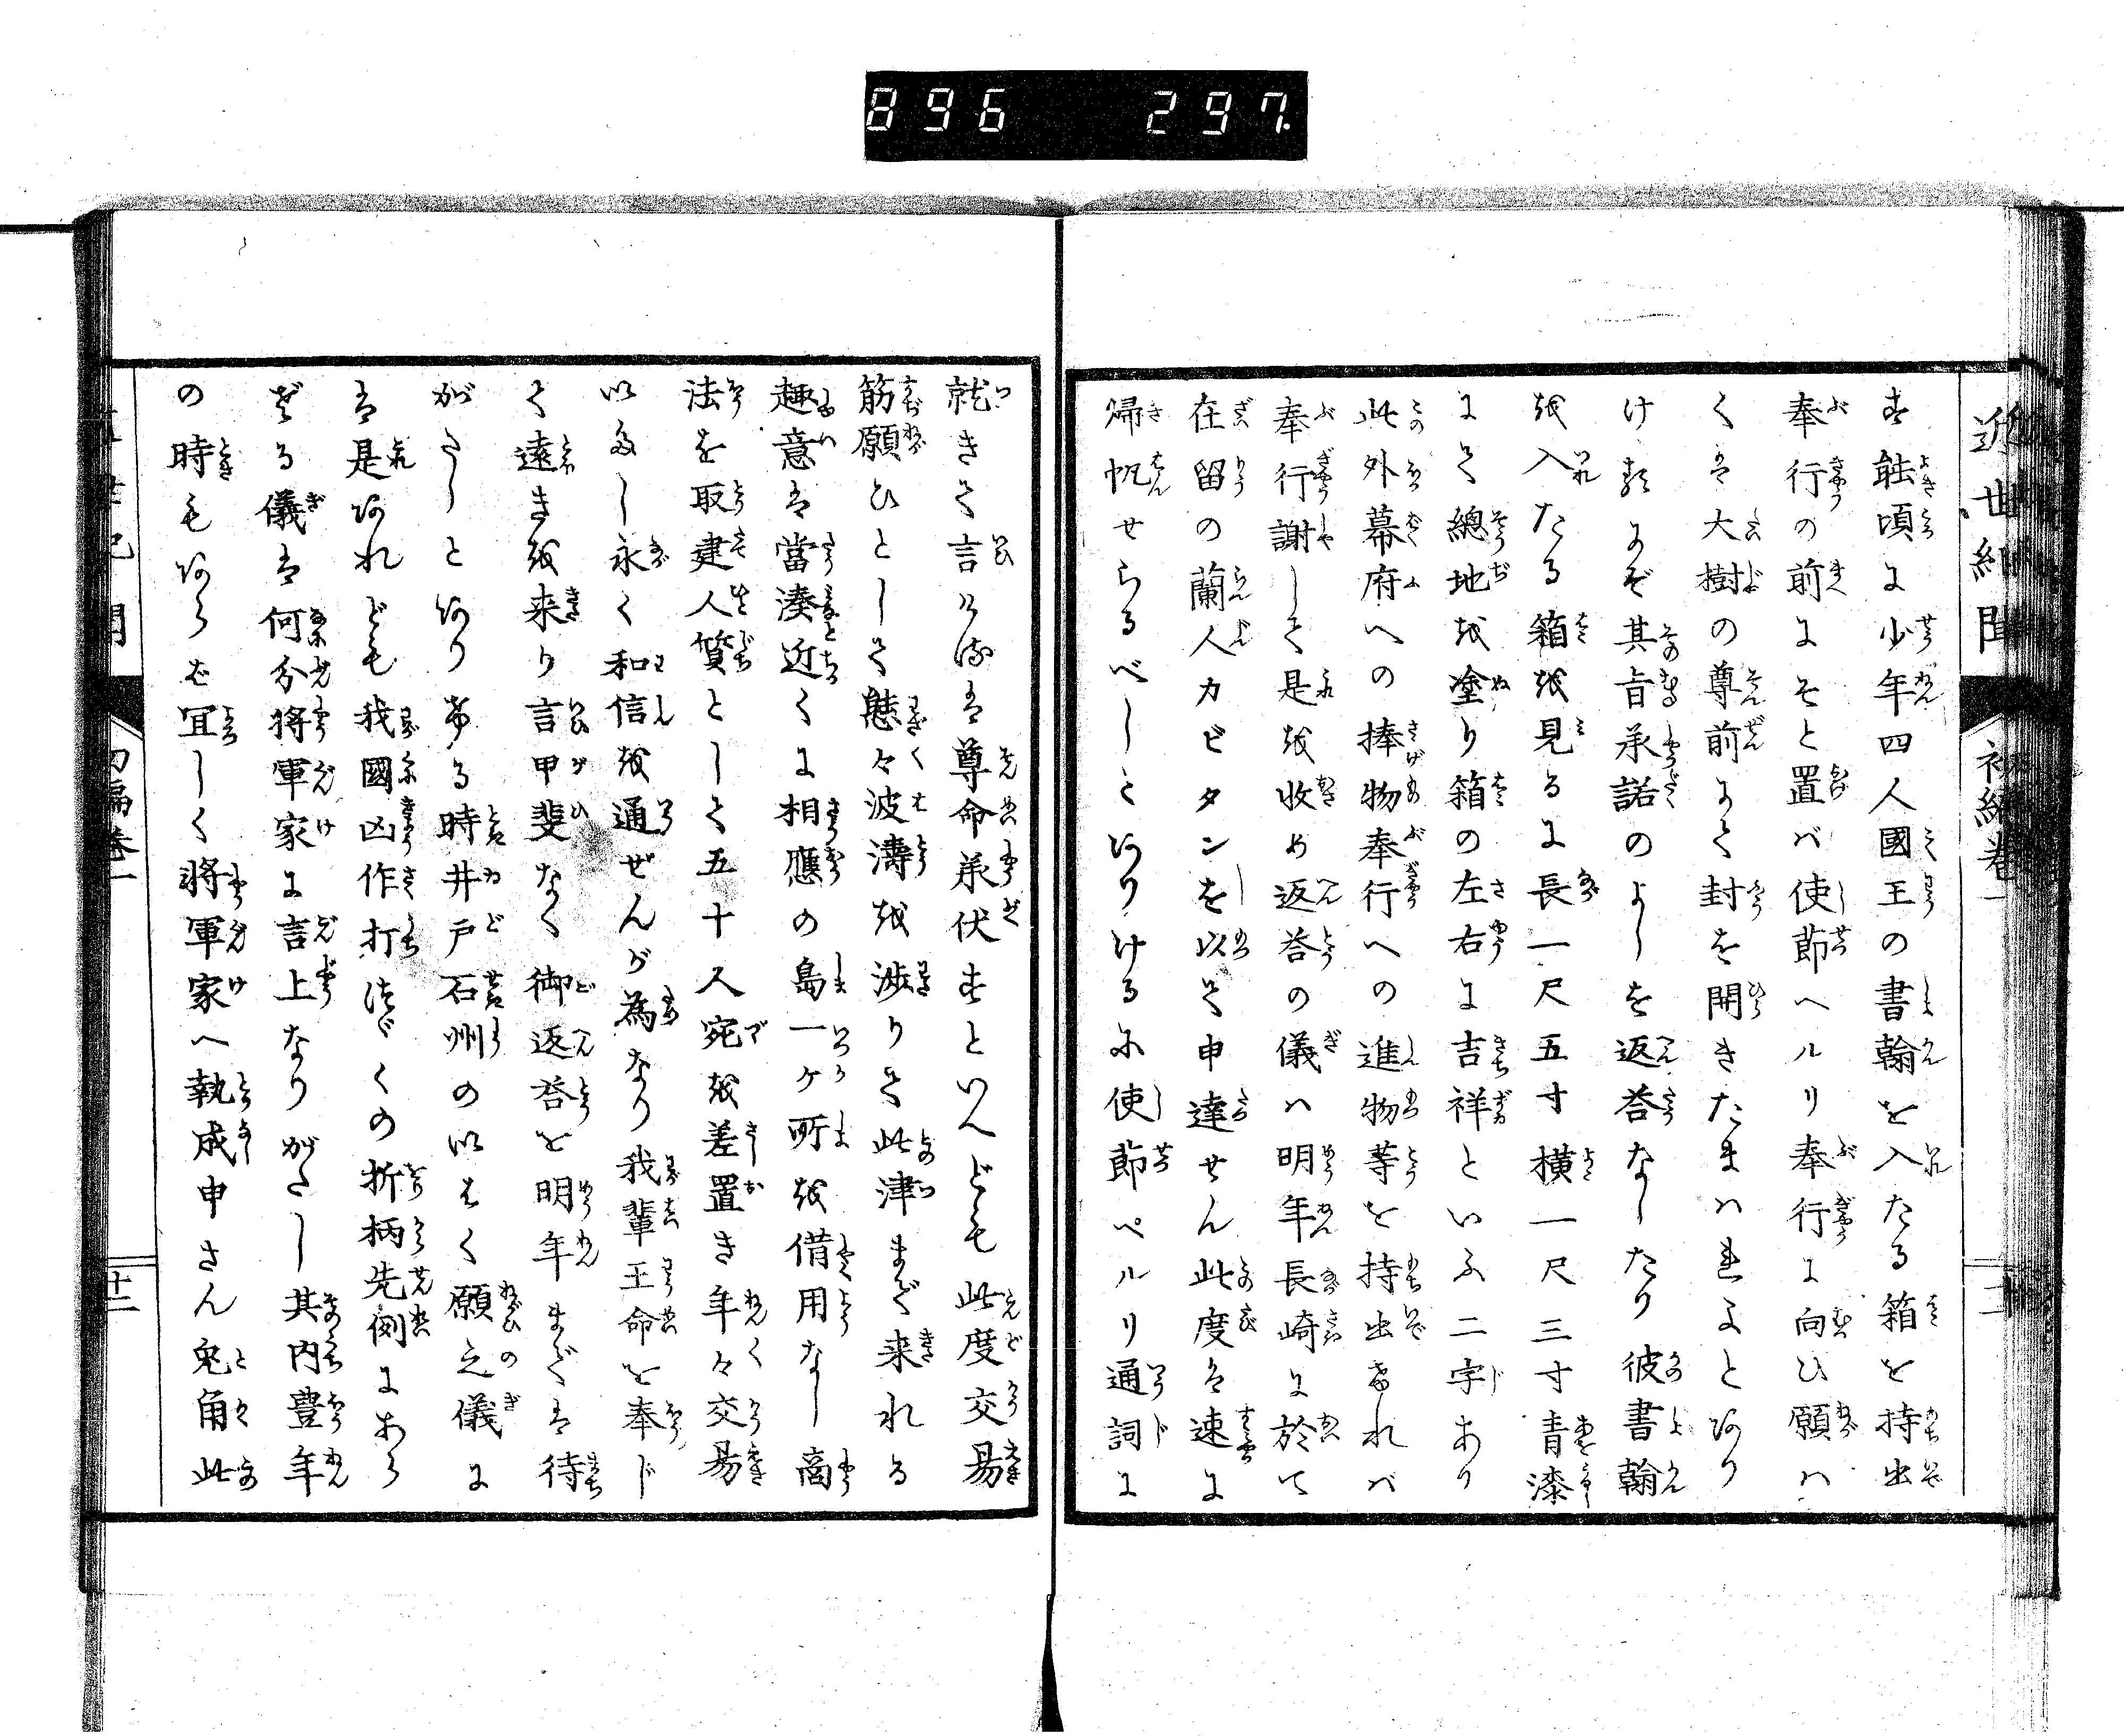 896 297.
近世紀聞 初編巻一
す能頃に少年四人國王の書翰を入たる箱を持出
奉行の前にそと置バ使節ヘルリ奉行に向ひ願ハ
くは大樹の尊前にて封を開きたまハれよとあり
けるにぞ其旨承諾のよしを返答なしたり彼書翰
を入たる箱を見るに長一尺五寸横一尺三寸青漆
にて總地を塗り箱の左右に吉祥といふ二字あり
此外幕府への捧物奉行への進物等を持出ければ
奉行謝して是を收め返答の儀ハ明年長崎に於て
在留の蘭人カピタンを以て申達せん此度は速に
帰帆せらるべしとありけるに使節ペルリ通詞に
就きて言けるは尊命承伏すといへども此度交易
筋願ひとして態々波濤を渉りて此津まで来れる
趣意は當湊近くに相應の島一ケ所を借用なし商
法を取建人質として五十人宛を差置き年々交易
いたし永く和信を通ぜんが為なり我輩王命を奉じ
て遠きを来り言甲斐なく御返答を明年までは待
がたしとありける時井戸石州のいはく願之儀に
は是あれども我國凶作打つゞくの折柄先例にあら
ざる儀は何分將軍家に言上なりがたし其内豊年
の時もあらば宜しく將軍家へ執成申さん兎角此
初編巻一
十二